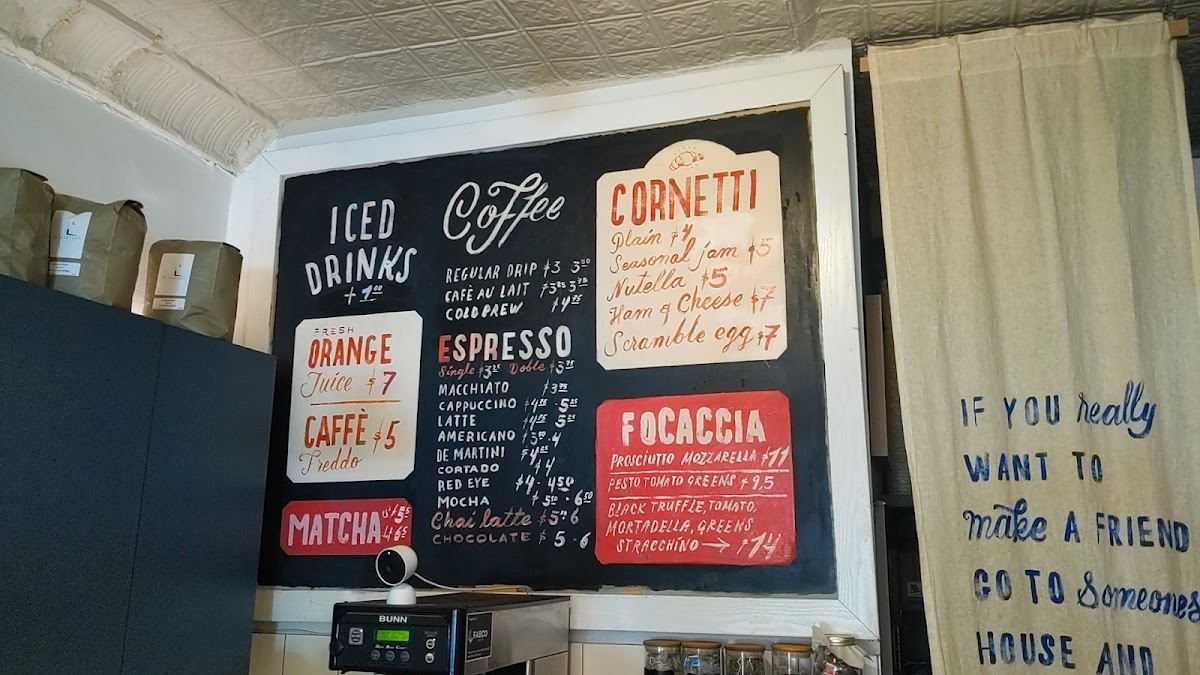 ICED
DRINKS
+ 1.00
FRESH
ORANGE
Juice $7
CAFFÈ $5
Freddo
MATCHA
Coffee
REGULAR DRIP $3 3.50
CAFÈ AU LAIT
COLD BREW $4.25
ESPRESSO
Single $3.25 Doble $3.75
MACCHIATO $3.75
CAPPUCCINO $4.75 - 5.25
LATTE $4.75 5.25
AMERICANO $3.50 - 4
DE MARTINI
CORTADO $4
RED EYE $4 - 4.50
MOCHA $5.50 - 6.50
Chai latte
CHOCOLATE $5 - 6
CORNETTI
Plain $4
Seasonal jam $5
Nutella $5
Ham & Cheese $7
Scramble egg $7
FOCACCIA
PROSCIUTTO MOZZARELLA $11
PESTO TOMATO GREENS $9,5
BLACK TRUFFLE, TOMATO,
MORTADELLA, GREENS
STRACCHINO → $14
IF YOU really
WANT TO
make A FRIEND
GO TO Someones
HOUSE AND
BUNN
FABCO